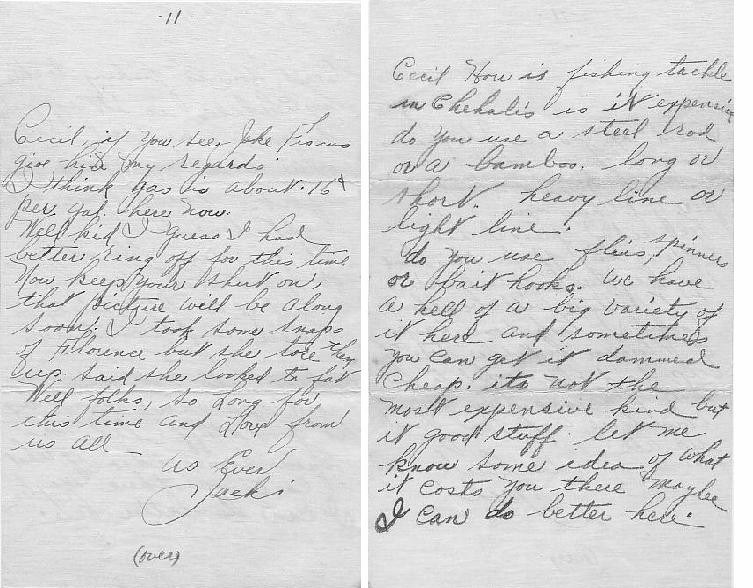 11
Cecil, if you see Jake
give him my regards
I think gas is about .16¢
per gal. here now.
Well kid I guess I had
better ring off for this time
Now keep your shirt on,
that picture will be along
soon. I took some snaps
of Florence but she tore them
up. said she looked to fat
Well folks, so long for
this time and Love from
us all
as Ever
(over)
Cecil How is fishing tackle
in Chehalis is it expensive
do you use a steel rod
or a bamboo. long or
short. heavy line or
light line.
do you use flies, spinners
or bait hooks. we have
a hell of a big variety of
it here and sometimes
you can get it dammed
cheap. its not the
most expensive kind but
it good stuff. let me
know some idea of what
it costs you there maybe
I can do better here.